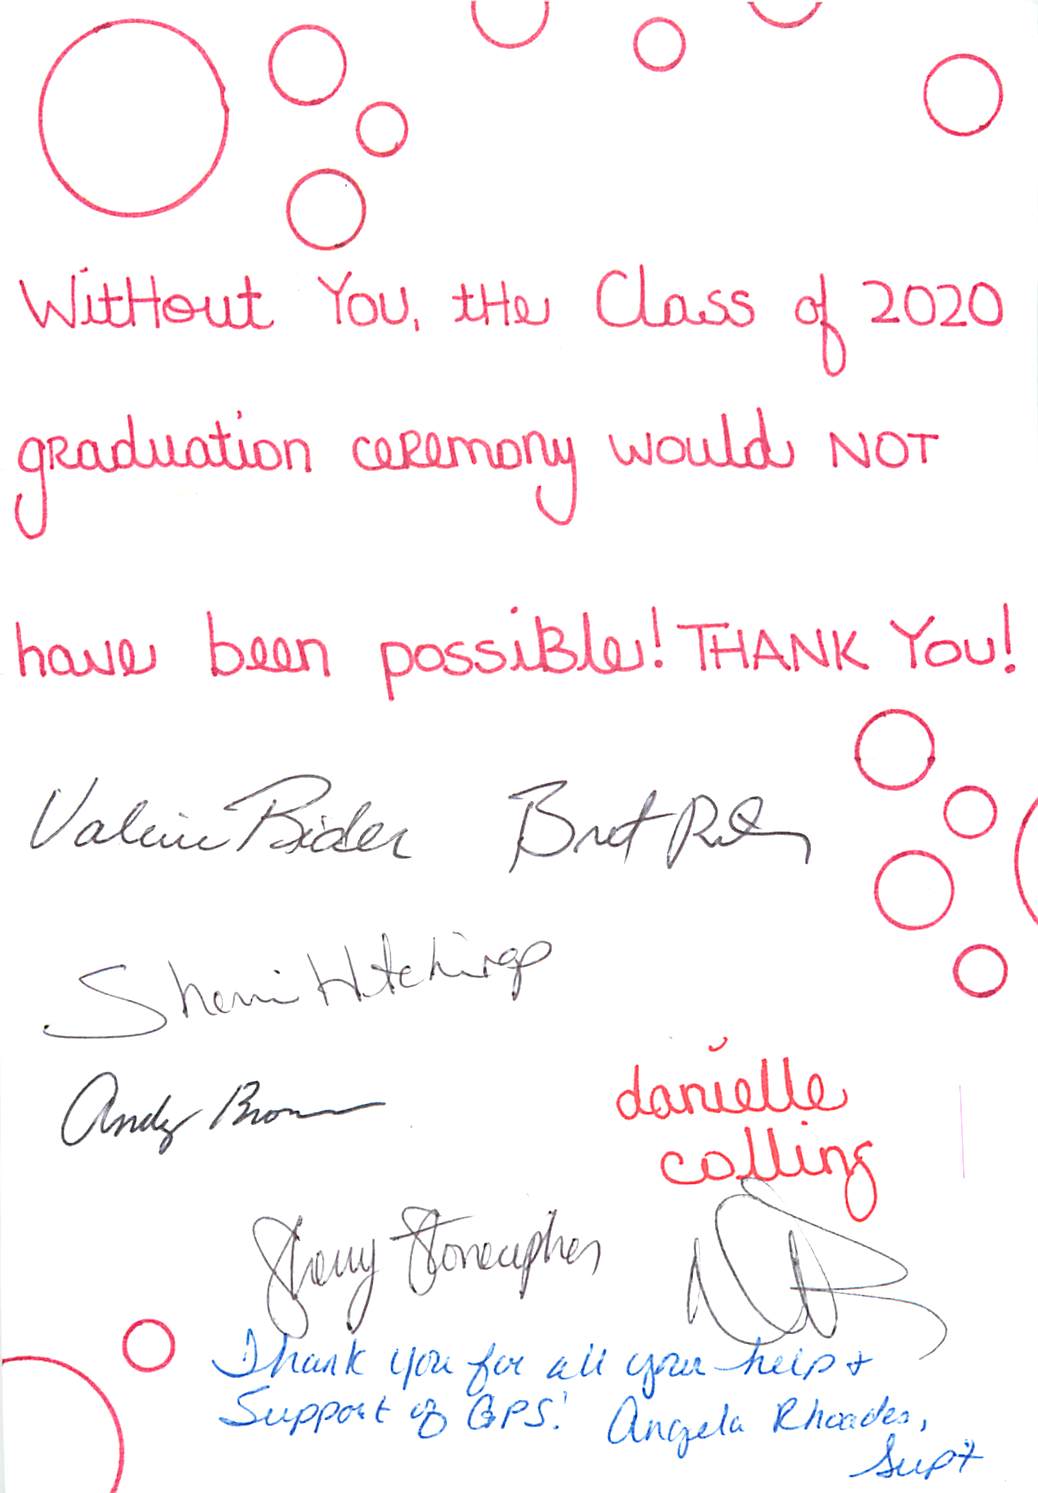 Without You, the Class of 2020
graduation ceremony would NOT
have been possible! THANK YOU!
Valerie Bider Bret
Sherri Hitchings
Andy Brown
danielle
colling
Sherry Stonecipher
Thank you for all your help +
Support of GPS! Angela Rhoades,
Supt